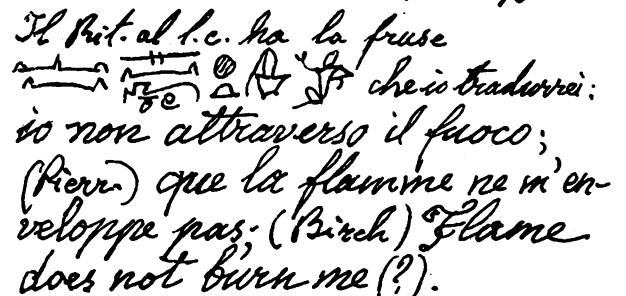 Il Rit. al l.c. ha la frase
che io tradurrei:
io non attraverso il fuoco;
(Pierr.) que la flamme ne m'en-
veloppe pas; (Birch) Flame
does not burn me (?).